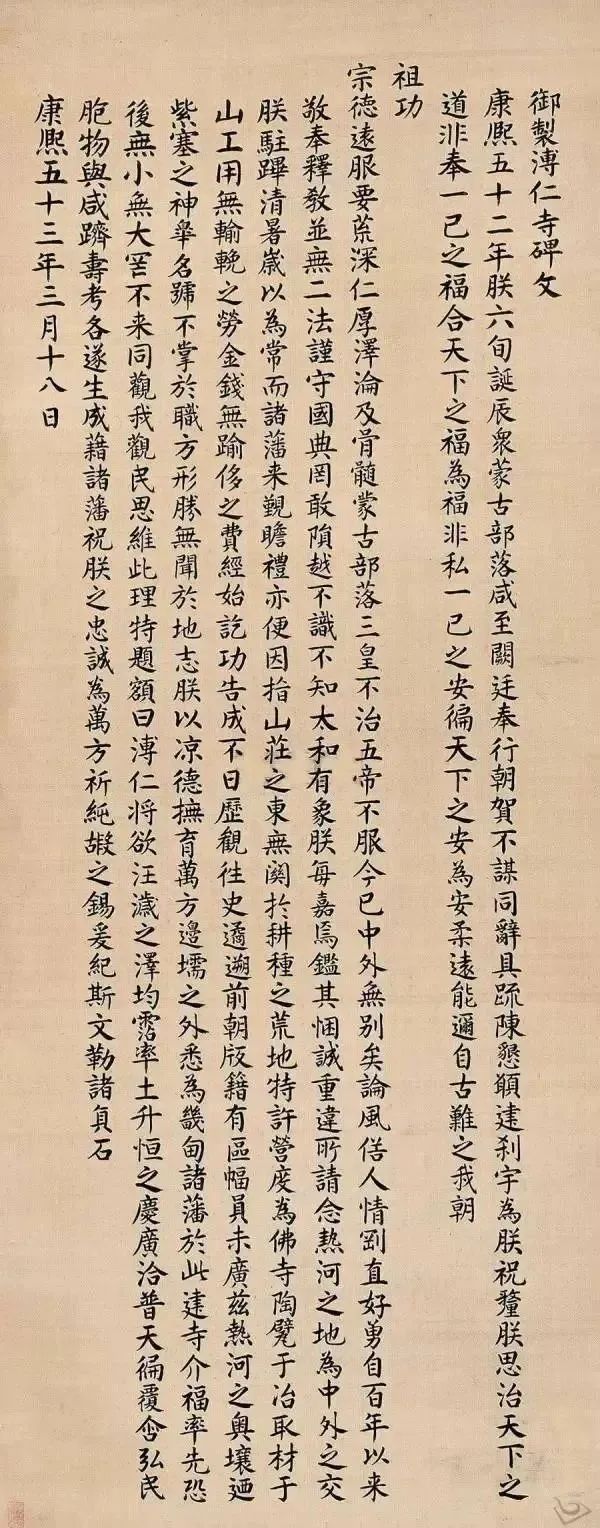 御製溥仁寺碑文
康熙五十二年朕六旬誕辰衆蒙古部落咸至闕廷奉行朝賀不謀同辭具疏陳懇願建刹宇為朕祝釐朕思治天下之
道非奉一己之福合天下之福為福非私一己之安徧天下之安為安柔遠能邇自古難之我朝
祖功
宗德遠服要荒深仁厚澤淪及骨髓蒙古部落三皇不治五帝不服今已中外無別矣論風俗人情剛直好勇自百年以来
敬奉釋教並無二法謹守國典罔敢隕越不識不知太和有象朕每嘉焉鑑其悃誠重違所請念熱河之地為中外之交
朕駐蹕清暑歲以為常而諸藩来覲瞻禮亦便因指山莊之東無關於耕種之荒地特許營度為佛寺陶甓于冶取材于
山工用無輸輓之勞金錢無踰侈之費經始訖功告成不日歷觀往史遹遡前朝版籍有區幅員未廣茲熱河之奧壤廼
紫塞之神皋名號不掌於職方形勝無聞於地志朕以涼德撫育萬方邊壖之外悉為畿甸諸藩於此建寺介福率先恐
後無小無大罔不来同觀我觀民思維此理特題額曰溥仁将欲汪濊之澤均霑率土升恒之慶廣洽普天徧覆含弘民
胞物與咸躋壽考各遂生成藉諸藩祝朕之忠誠為萬方祈純嘏之錫爰紀斯文勒諸貞石
康熙五十三年三月十八日